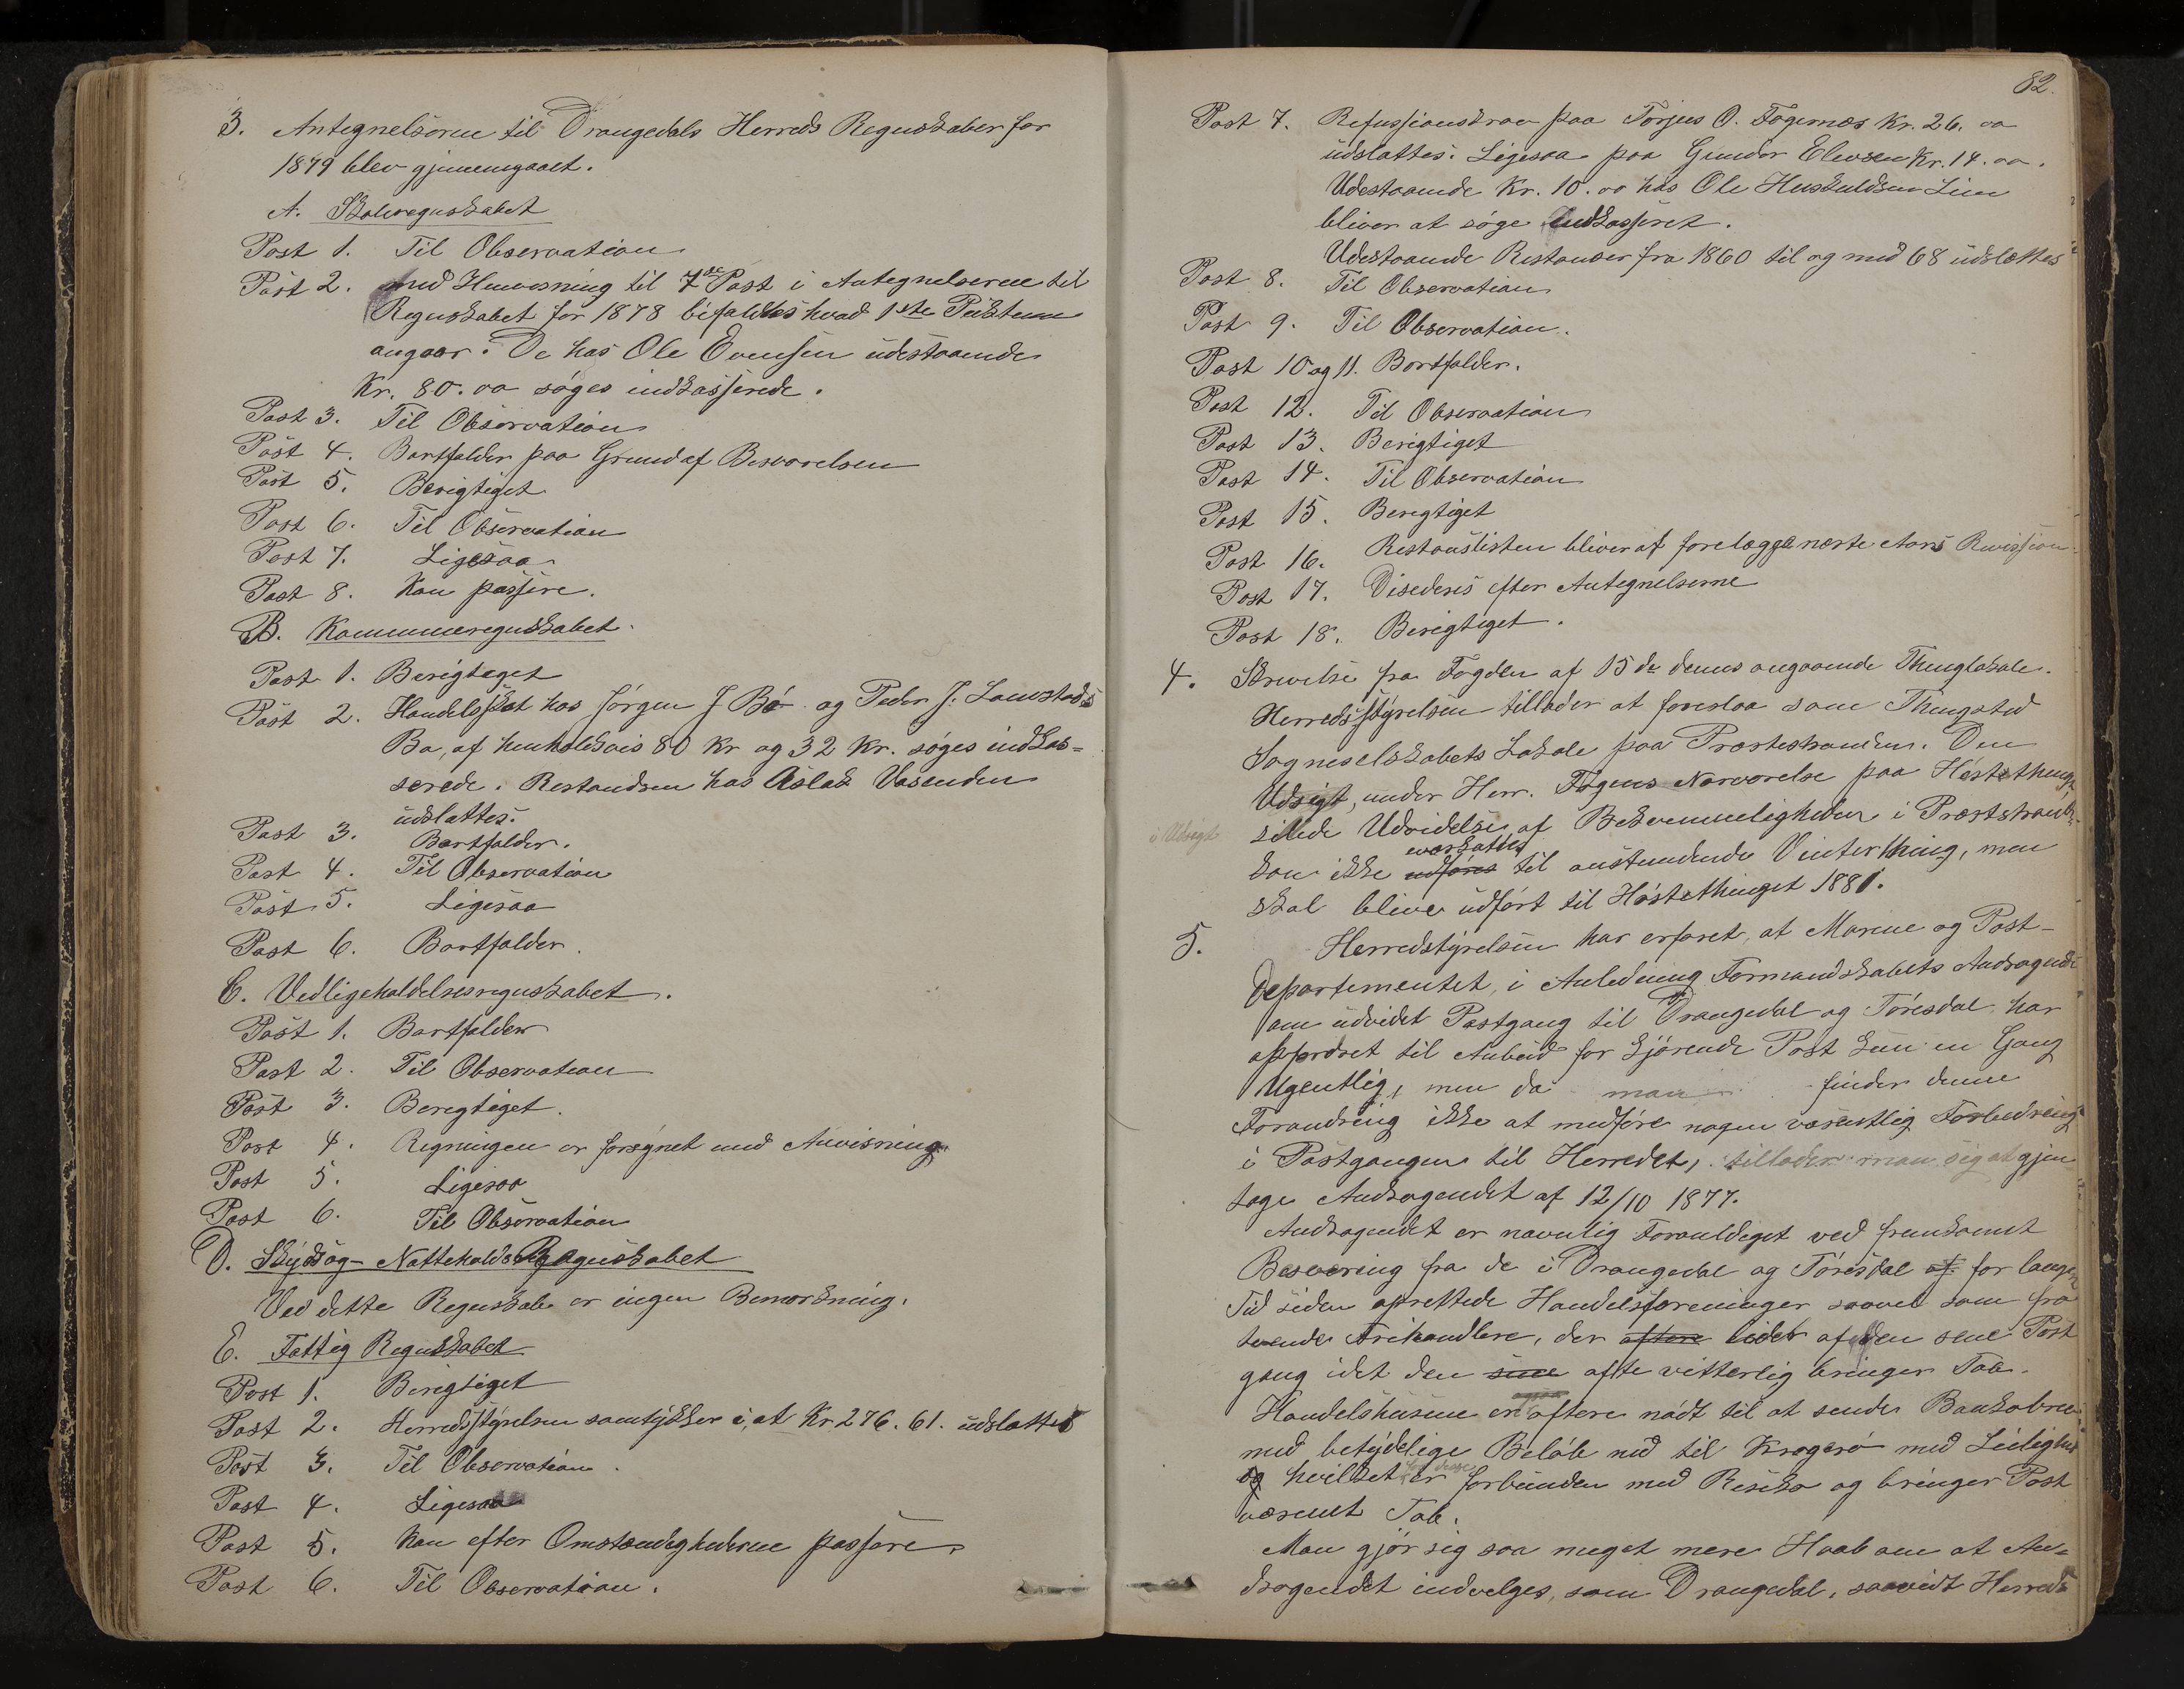 3. Antegnelserne til Drangedals Herreds Regnskaber for
1879 blev gjennemgaaet.
A. Skoleregnskabet
Post 1. Til Observation
Post 2. med Henvisning til 7de Post i Antegnelserne til
Regnskabet for 1878 bifaldtes hvad 1ste Punktum
angaar. De hos Ole Evensen udestaaende
Kr. 80.00 søges indkasserede.
Post 3. Til Observation
Post 4. Bortfalder paa Grund af Besvarelsen
Post 5. Berigtiget
Post 6. Til Observation
Post 7. Ligesaa
Post 8. Kan passere.
B. Kommuneregnskabet.
Post 1. Berigtiget
Post 2. Handelsskat hos Jørgen J Bø og Peder J.
Bø, af henholdsvis 80 Kr og 32 Kr. søges indkas=
serede. Restandsen hos Aslak Vasenden
udslattes.
Post 3. Bortfalder.
Post 4. Til Observation
Post 5. Ligesaa
Post 6. Bortfalder.
C. Vedligeholdelsesregnskabet.
Post 1. Bortfalder
Post 2. Til Observation
Post 3. Berigtiget.
Post 4. Regningen er forsynet med Anvisning
Post 5. Ligesaa
Post 6. Til Observation
D. Skyds og Natteholds Regnskabet
Ved dette Regnskab er ingen Bemærkning.
E. Fattig Regnskabet
Post 1. Berigtiget
Post 2. Herredsstyrelsen samtykker i, at Kr 276.61. udslattes
Post 3. Til Observation.
Post 4. Ligesaa
Post 5. Kan efter Omstændighederne passere
Post 6. Til Observation.
82.
Post 7. Refussionskrav paa Torjus O. Fogernæs Kr. 26.00
udslattes. Ligesaa paa Gundor Elevsen Kr. 14.00.
Udestaaende Kr. 10.00 hos Ole Huskuldsen Lien
bliver at søge indkasseret.
Udestaaende Restancer fra 1860 til og med 68 udslættes
Post 8. Til Observation
Post 9. Til Observation.
Post 10 og 11. Bortfalder.
Post 12. Til Observation
Post 13. Berigtiget
Post 14. Til Observation
Post 15. Berigtiget
Post 16. Restanslisten bliver at forelægge næste Aars Revission.
Post 17. Desideres efter Antegnelserne
Post 18. Berigtiget.
4. Skrivelse fra Fogden af 15de dennes angaaende Thinglokale.
Herredsstyrelsen tillader at foreslaa som Thingsted
Sogneselskabets Lokale paa Præstestranden. Den
Udsigt, under Herr. Fogens Nærværelse paa Høstethinge,
i Udsigt stillede Udvidelse af Bekvemmeligheden i Præstestrand
kan ikke udføres iværksættes til anstundende Vinterthing, men
skal blive udført til Høstethinget 1881.
5. Herredstyrelsen har erfaret, at Marine og Post-
Departementet, i Anledning Formandskabets Andragende
om udvidet Postgang til Drangedal og Tørrisdal har
opfordret til Anbud for kjørende Post kun en Gang
Ugentlig, men da man finder denne
Forandring ikke at medføre nogen væsentlig Forbedring
i Postgangen til Herredet, tillader man sig at gjen
tage Andragendet af 12/10 1877.
Andragendet er navnlig Foranlediget ved fremkommet
Besværing fra de i Drangedal og Tørrisdal af for længe
Tid siden oprettede Handelsforeninger saavel som fra
tvende Frihandlere, der oftere lider af den sene Post
gang idet den sine ofte vitterlig bringer Tab.
Handelshusene er oftere nødt til at sende Bankobreve
med betydelige Beløb ned til Kragerø med Leilighed
og hvilket er for disse forbunden med Risiko og bringer Post
væsenet Tab.
Man gjør sig saa meget mere Haab om at An=
dragendet indvelges, som Drangedal, saavidt Herreds